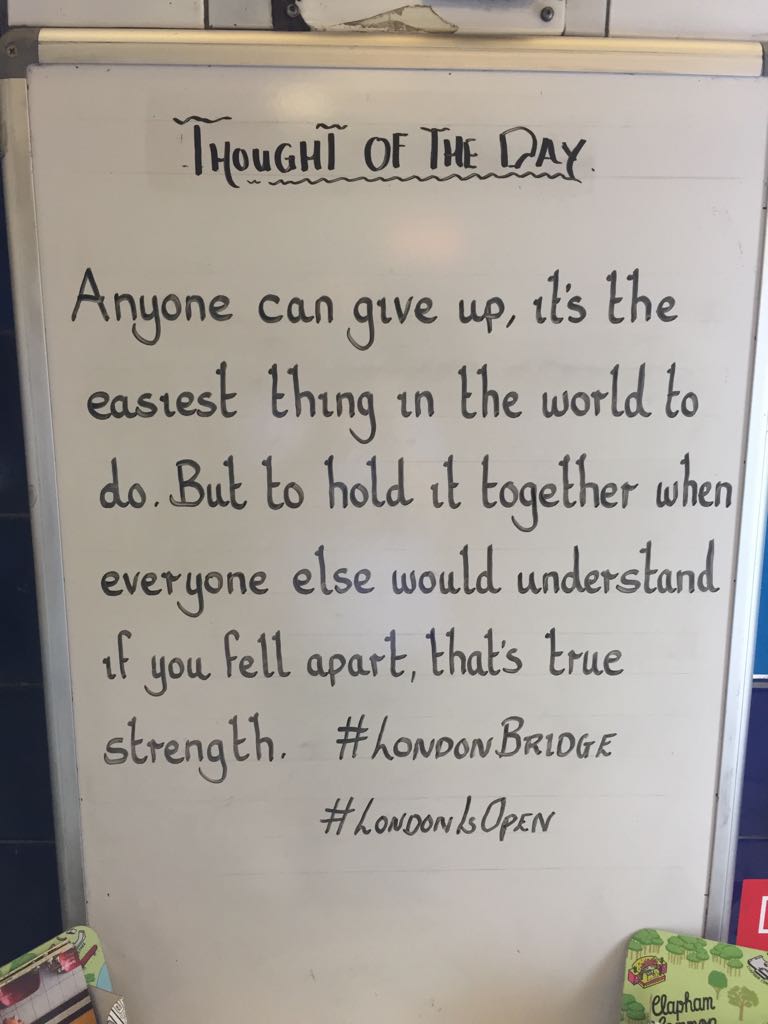 THOUGHT OF THE DAY.
Anyone can give up, it's the
easiest thing in the world to
do. But to hold it together when
everyone else would understand
if you fell apart, that's true
strength. #LONDONBRIDGE
#LONDONISOPEN
Clapham
Common